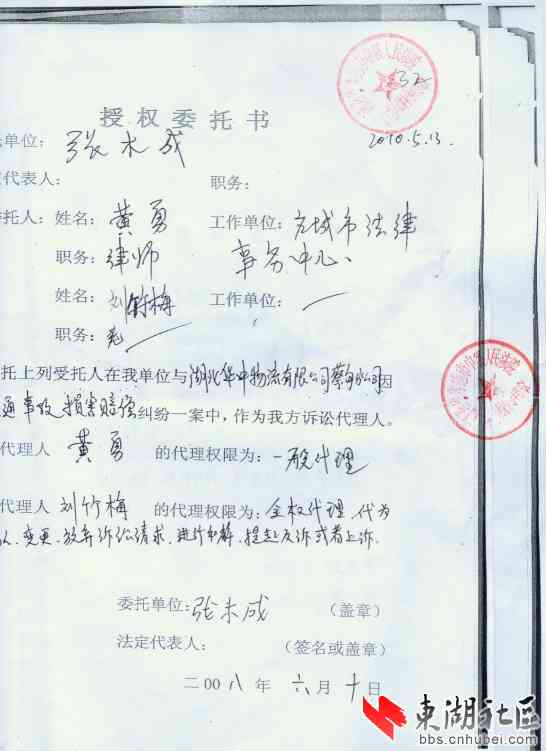 授权委托书
2010.5.13.
托单位：张木成
代表人：　职务：
委托人：姓名：黄勇　工作单位：方城市法律
职务：律师　事务中心、
姓名：刘竹梅　工作单位：
职务：
托上列受托人在我单位与湖北华中物流有限公司蔡甸分公司因
通事故损害赔偿纠纷一案中，作为我方诉讼代理人。
代理人　黄勇　的代理权限为：一般代理
代理人　刘竹梅　的代理权限为：全权代理、代为
认、变更、放弃诉讼请求、进行和解、提起反诉或者上诉。
委托单位：张木成　（盖章）
法定代表人：　（签名或盖章）
二00八年六月十日
東湖社区
bbs.cnhubei.com